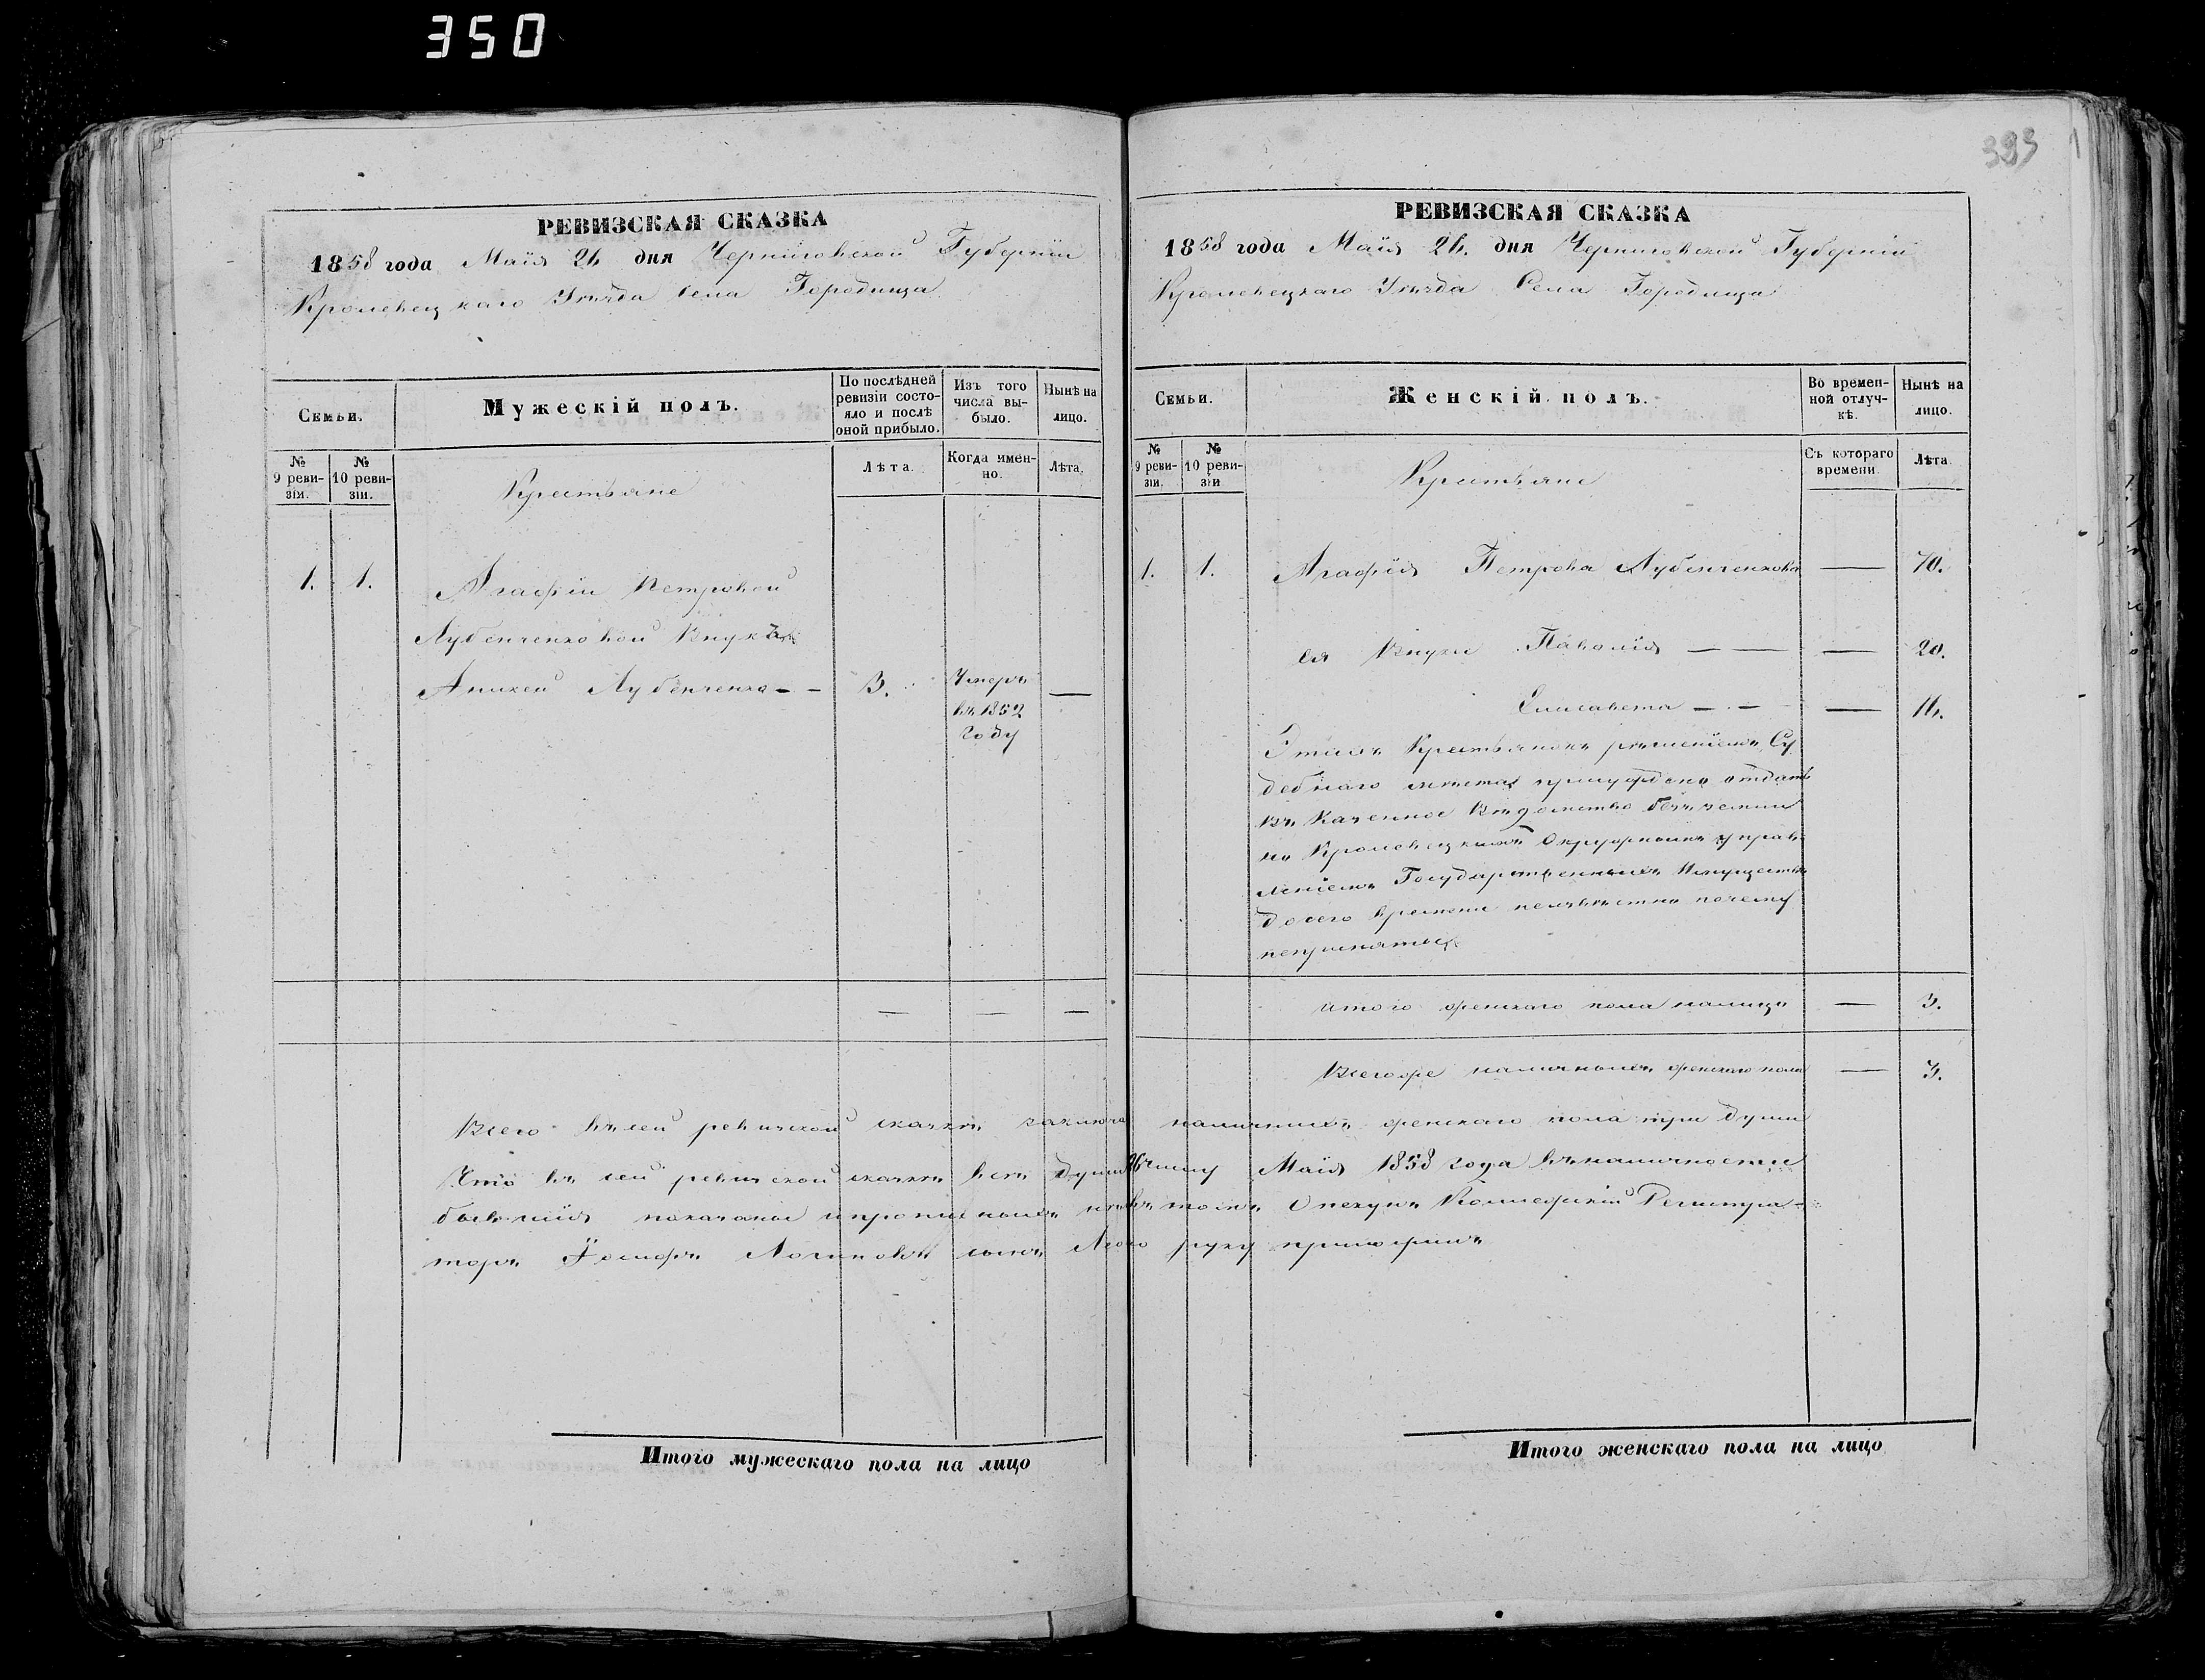 350
393
РЕВИЗСКАЯ СКАЗКА
1858 года Маія 26 дня Черниговской Губерніи
Кролевецкаго Уѣзда Села Городища
Семьи.
Мужескій полъ.
По послѣдней ревизіи состояло и послѣ оной прибыло.
Изъ того числа выбыло.
Нынѣ на лицо.
№ 9 ревизіи.
№ 10 ревизіи.
Крестьяне
Лѣта.
Когда именно.
Лѣта.
1. 1. Агафіи Петровой
Лубенченковой Внукъ
Аникей Лубенченко - - 3. Умеръ —
въ 1852
году
— — —
РЕВИЗСКАЯ СКАЗКА
1858 года Маія 26. дня Черниговской Губерніи
Кролевецкаго Уѣзда Села Городища
Семьи.
Женскій полъ.
Во временной отлучкѣ.
Нынѣ на лицо.
№ 9 ревизіи.
№ 10 ревизіи
Крестьяне
Съ котораго времени.
Лѣта.
1. 1. Агафія Петрова Лубенченкова — 70.
ея Внуки Паволія — — — 20.
Елисавета — - — — 16.
Этихъ Крестьянокъ рѣшеніемъ Су
дебнаго мѣста присуждено отдать
въ Казенное Вѣдомство
но Кролевецкимъ Окружнымъ управ
леніемъ Государственныхъ Имуществъ
до сего времени неизвѣстно почему
непринаты
итого женскаго пола налицо — 3.
Всегоже наличныхъ женскаго пола — 3.
Всего въ сей ревизской сказкѣ наличныхъ женскаго пола три души
Что въ сей ревизской сказкѣ всѣ души 26 числу Маія 1858 года въ наличности
бывшія показаны и въ томъ Опекунъ Коллежскій Регистра-
торъ сынъ руку приложилъ
Итого мужескаго пола на лицо
Итого женскаго пола на лицо